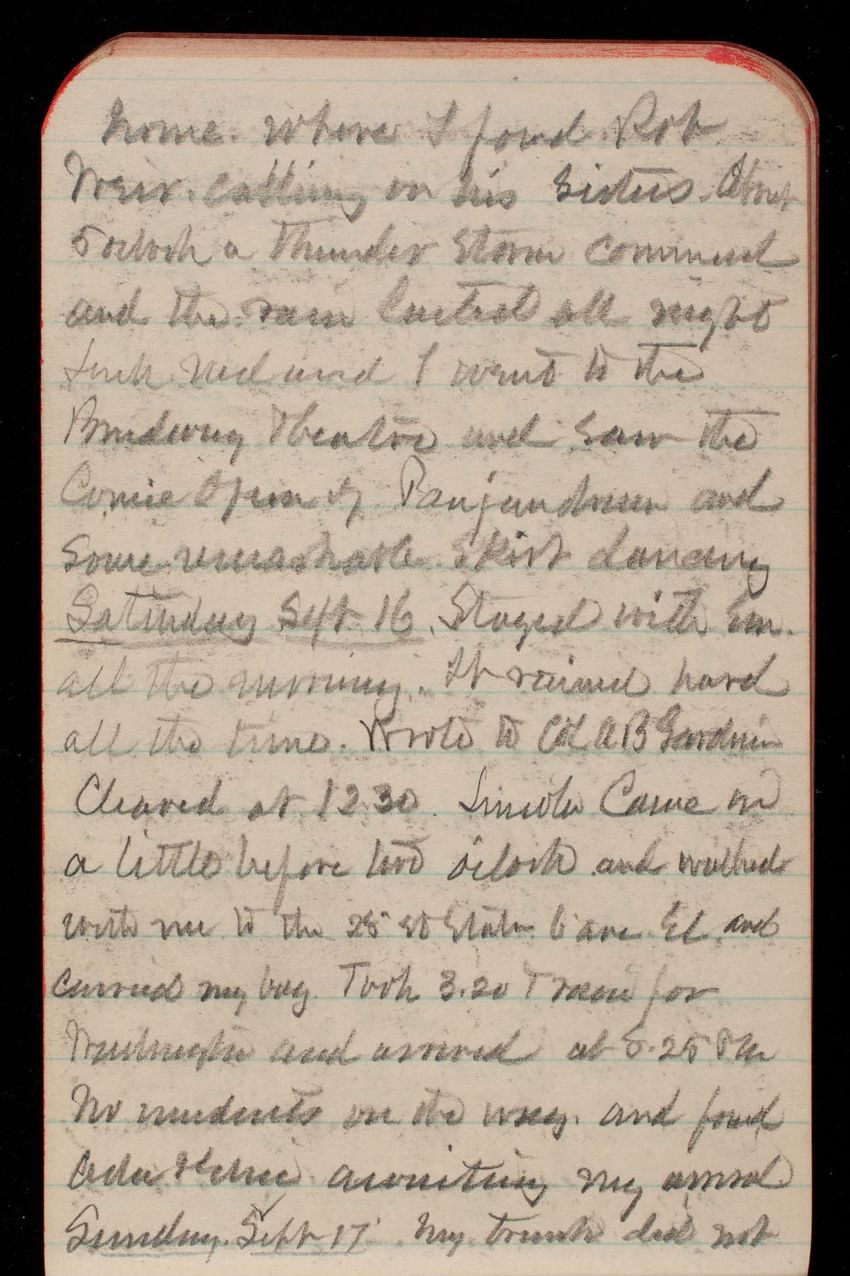 home. where I found Rob
Weir. calling on his Sisters. About
5 oclock a thunder storm commenced
and the rain lasted all night
Jack Ned and I went to the
Broadway Theatre and saw the
Comic Opera of Panjandrum and
Some remarkable Skirt dancing
Saturday Sept 16. Stayed with Em.
all the morning. It rained hard
all the time. Wrote to Col A B Gardner
Cleared at 12 30. Lincoln Came in
a little before two oclock and walked
with me to the 28 st Statn 6 ave. El. and
carried my bag. Took 3.20 Train for
Washington and arrived at 8.25 PM
No incidents on the way. and found
awaiting my arrival
Sunday. Sept 17. My trunk did not